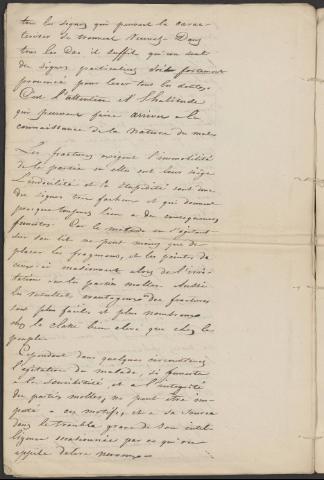 tous les signes qui peuvent le carac-
teriser se trouvent reunis. Dans
tous les cas il suffit qu'un seul
de signes particuliers soit fortement
prononcé pour lever tous les doutes.
C'est l'attention et l'habitude
qui peuvent faire arriver a la
connaissance de la nature du mal.
Les fractures exigent l'immobilité
de la partie où elles ont leur siège
L'indocilité et la stupidité sont donc
des signes tres facheux et qui donnent
presque toujours lieu a des consequences
funestes. Car le malade en s'agitant
sur son lit ne peut moins que de
placer les fragmens, et les pointes de
ceux-ci maintenant alors de l'irri-
tation sur les parties molles. Aussi
les resultats avantageux des fractures
sont plus faciles et plus nombreux
chez la classe bien elevé que chez les
peuple.
Cependant dans quelques circonstances
l'agitation du malade, si funeste
à la sensibilité, et a l'integrité
des parties molles, ne peut être im-
puté a ces motifs, et a sa source
dans le trouble grave de son intel-
ligence occasionnée par ce qu'on
appele delire nerveux.